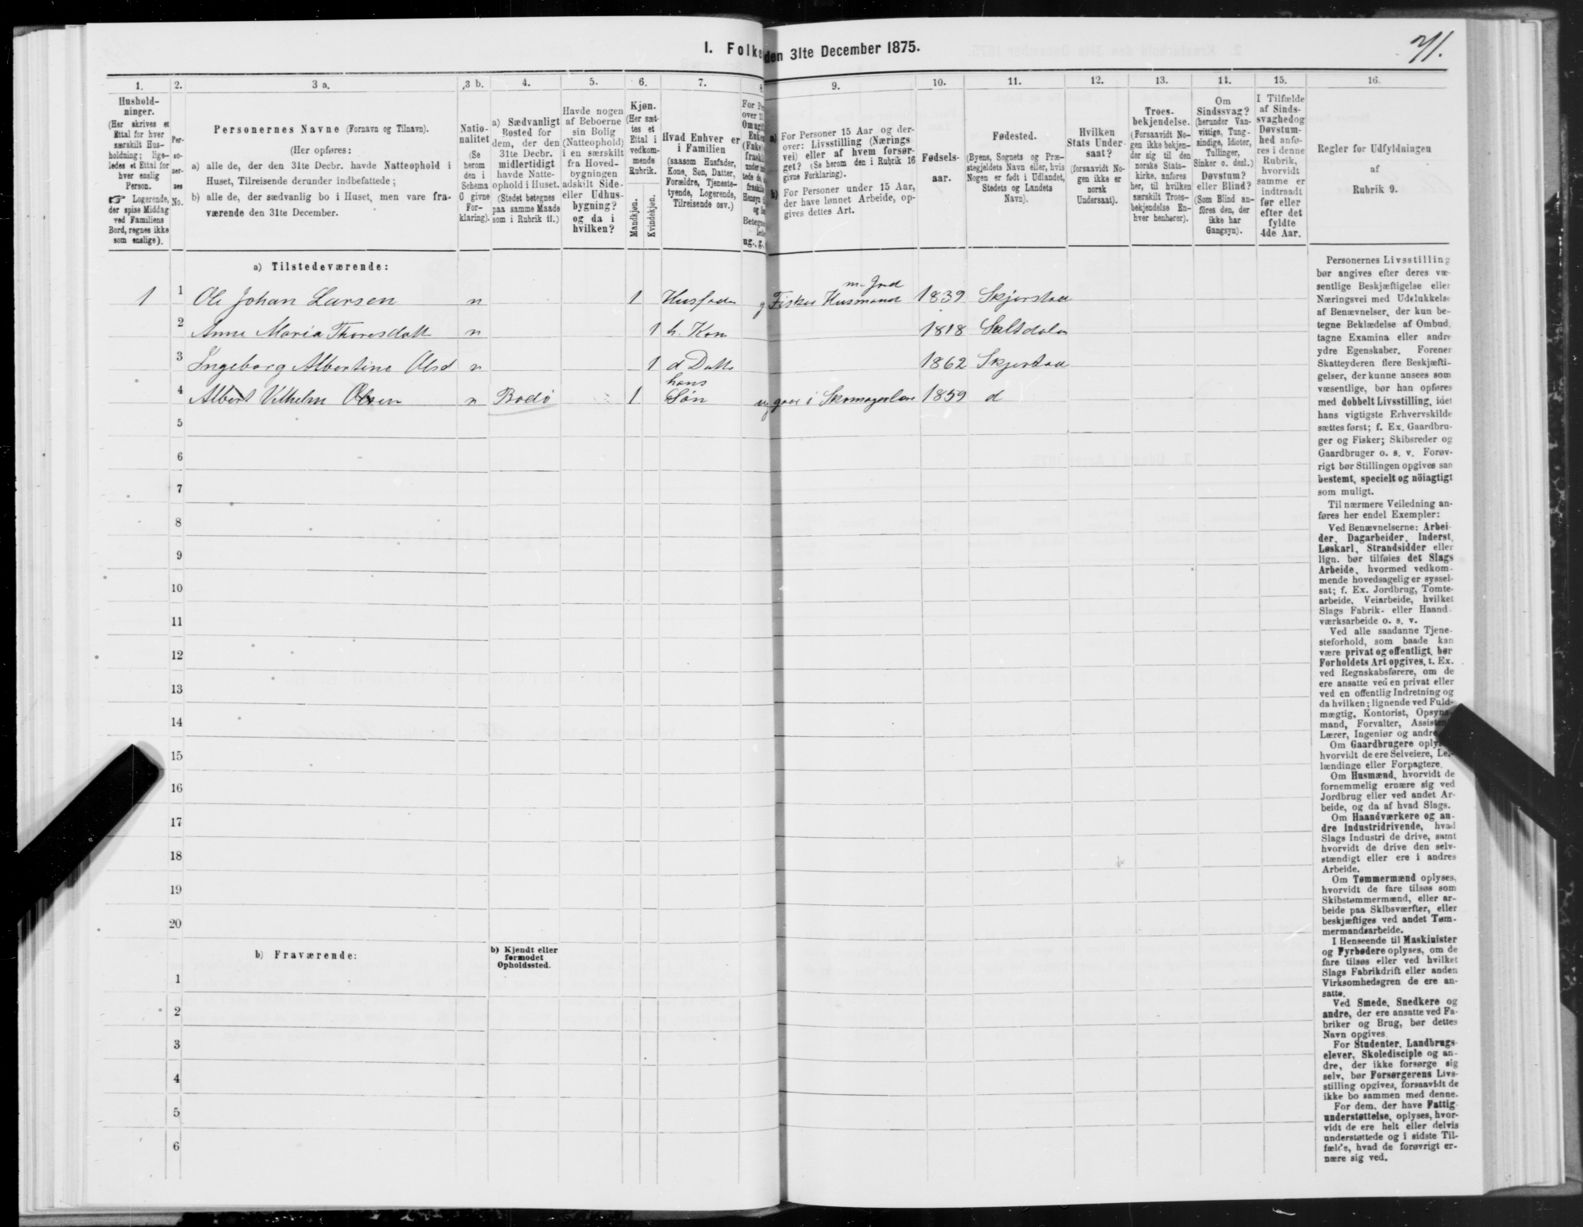 I. Folke den 31te December 1875.
71.
1. 2. 3 a. 3 b. 4. 5. 6. 7. 8 9. 10. 11. 12. 13. 14. 15. 16.
Hushold-
ninger.
(Her skrives et
Ettal for hver
særskilt Hus-
holdning; lige-
ledes et Ettal for
hver enslig
Person.
☞ Logerende,
der spise Middag
ved Familiens
Bord, regnes ikke
som enslige).
Per-
so-
ner-
nes
No.
Personernes Navne (Fornavn og Tilnavn).
(Her opføres:
a) alle de, der den 31te Decbr. havde Natteophold i
Huset, Tilreisende derunder indbefattede;
b) alle de, der sædvanlig bo i Huset, men vare fra-
værende den 31te December.
Natio-
nalitet
(Se
herom
den i
Schema
O givne
For-
klaring).
a) Sædvanligt
Bosted for
dem, der den
31te Decbr.
midlertidigt
havde Natte-
ophold i Huset.
(Stedet betegnes
paa samme Maade
som i Rubrik 11.)
Havde nogen
af Beboerne
sin Bolig
(Natteophold)
i en særskilt
fra Hoved-
bygningen
adskilt Side-
eller Udhus-
bygning?
og da i
hvilken?
Kjøn.
(Her sæt-
tes et
Ettal i
vedkom-
mende
Rubrik.
Mandkjøn.
Kvindekjøn.
Hvad Enhver er
i Familien
(saasom Husfader,
Kone, Søn, Datter,
Forældre, Tjeneste-
tyende, Logerende,
Tilreisende osv.)
ug., g.,
a) For Personer 15 Aar og der-
over: Livsstilling (Nærings
vei) eller af hvem forsør-
get? (Se herom den i Rubrik 16
givne Forklaring).
b) For Personer under 15 Aar,
der have lønnet Arbeide, op-
gives dettes Art.
Fødsels-
aar.
Fødested.
(Byens, Sognets og Præ-
stegjeldets Navn eller, hvis
Nogen er født i Udlandet,
Stedets og Landets
Navn).
Hvilken
Stats Under-
saat?
(forsaavidt No-
gen ikke er
norsk
Undersaat).
Troes-
bekjendelse.
(Forsaavidt No-
gen ikke bekjen-
der sig til den
norske Stats-
kirke, anføres
her, til hvilken
særskilt Troes-
bekjendelse En-
hver henhører).
Om
Sindssvag?
(herunder Van-
vittige, Tung-
sindige, Idioter,
Tullinger,
Sinker o. desl.)
Døvstum?
eller Blind?
(Som Blind an-
føres den, der
ikke har
Gangsyn).
I Tilfælde
af Sinds-
svaghedog
Døvstum-
hed anfø-
res i denne
Rubrik,
hvorvidt
samme er
indtraadt
før eller
efter det
fyldte
4de Aar.
Regler for Udfyldningen
af
Rubrik 9.
a) Tilstedeværende:
m. Jord
1 1 Ole Johan Larsen n 1 Husfader g Fisker Husmand 1839 Skjerstad
2 Anne Maria Thoresdatt n 1 h. Kon 1818 Saltdalen
3 Ingeborg Albertine Olsd n 1 d Datte 1862 Skjerstad
4 Albert Vilhelm Olsen n Bodø 1 hans Søn ug gaar i Skomagerlære 1859 d
5
6
7
8
9
10
11
12
13
14
15
16
17
18
19
20
b) Fraværende:
b) Kjendt eller
formodet
Opholdssted.
1
2
3
4
5
6
Personernes Livsstilling
bør angives efter deres væ-
sentlige Beskjæftigelse eller
Næringsvei med Udelukkelse
af Benævnelser, der kun be-
tegne Beklædelse af Ombud,
tagne Examina eller andre
ydre Egenskaber. Forener
Skatteyderen flere Beskjæfti-
gelser, der kunne ansees som
væsentlige, bør han opføres
med dobbelt Livsstilling, idet
hans vigtigste Erhvervskilde
sættes først; f. Ex. Gaardbru-
ger og Fisker; Skibsreder og
Gaardbruger o. s. v. Forøv-
rigt bør Stillingen opgives saa
bestemt, specielt og nöiagtigt
som muligt.
Til nærmere Veiledning an-
føres her endel Exempler:
Ved Benævnelserne: Arbei-
der, Dagarbeider, Inderst,
Løskarl, Strandsidder eller
lign. bør tilføies det Slags
Arbeide, hvormed vedkom-
mende hovedsagelig er syssel-
sat; f. Ex. Jordbrug, Tomte-
arbeide, Veiarbeide, hvilket
Slags Fabrik- eller Haand-
værksarbeide o. s. v.
Ved alle saadanne Tjene-
steforhold, som baade kan
være privat og offentligt, bør
Forholdets Art opgives, t. Ex.
ved Regnskabsførere, om de
ere ansatte ved en privat eller
ved en offentlig Indretning og
da hvilken; lignende ved Fuld-
mægtig, Kontorist, Opsyns-
mand, Forvalter, Assistent,
Lærer, Ingeniør og andre.
Om Gaardbrugere oplyses,
hvorvidt de ere Selveiere, Lei-
lændinge eller Forpagtere.
Om Husmænd, hvorvidt de
fornemmelig ernære sig ved
Jordbrug eller ved andet Ar-
beide, og da af hvad Slags.
Om Haandværkere og an-
dre Industridrivende, hvad
Slags Industri de drive, samt
hvorvidt de drive den selv-
stændigt eller ere i andres
Arbeide.
Om Tømmermænd oplyses,
hvorvidt de fare tilsøs som
Skibstømmermænd, eller ar-
beide paa Skibsværfter, eller
beskjæftiges ved andet Tøm-
mermandsarbeide.
I Henseende til Maskinister
og Fyrbødere oplyses, om de
fare tilsøs eller ved hvilket
Slags Fabrikdrift eller anden
Virksomhedsgren de ere an-
satte.
Ved Smede, Snedkere og
andre, der ere ansatte ved Fa-
briker og Brug, bør dettes
Navn opgives
For Studenter, Landbrugs-
elever, Skoledisciple og an-
dre, der ikke forsørge sig
selv, bør Forsørgerens Livs-
stilling opgives, forsaavidt de
ikke bo sammen med denne.
For dem, der have Fattig-
understøttelse, oplyses, hvor-
vidt de ere helt eller delvis
understøttede og i sidste Til-
fælde, hvad de forøvrigt er-
nære sig ved.